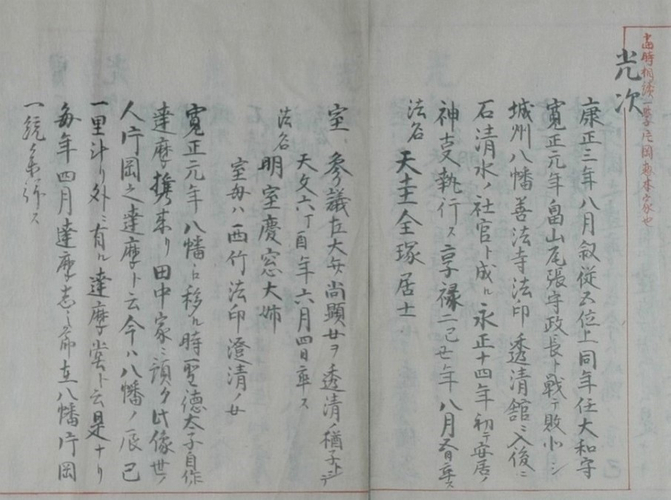 光次
康正三年八月叙従五位上同年任大和守
寛正元年畠山尾張守政長ト戦テ敗北シ
城州八幡善法寺法印透清館ニ入後ニ
石清水ノ社官ト成ル永正十四年初テ安居ノ
神事執行ス享禄二己丑年八月 日卒ス
法名 天圭全琢居士
室 参議左大弁尚顕女ヲ透清ノ猶子ニシテ
天文六丁酉年六月四日卒ス
法名 明室慶窓大姉
室母ハ西竹法印澄清ノ女
寛正元年八幡ニ移ル時聖徳太子自作
達磨携来リ田中家ニ預ク此像世ノ
人片岡之達磨ト云今ハ八幡ノ辰巳
一里斗リ外ニ有ル達磨堂ト云是ナリ
毎年四月達磨 前在八幡片岡
一統 ス